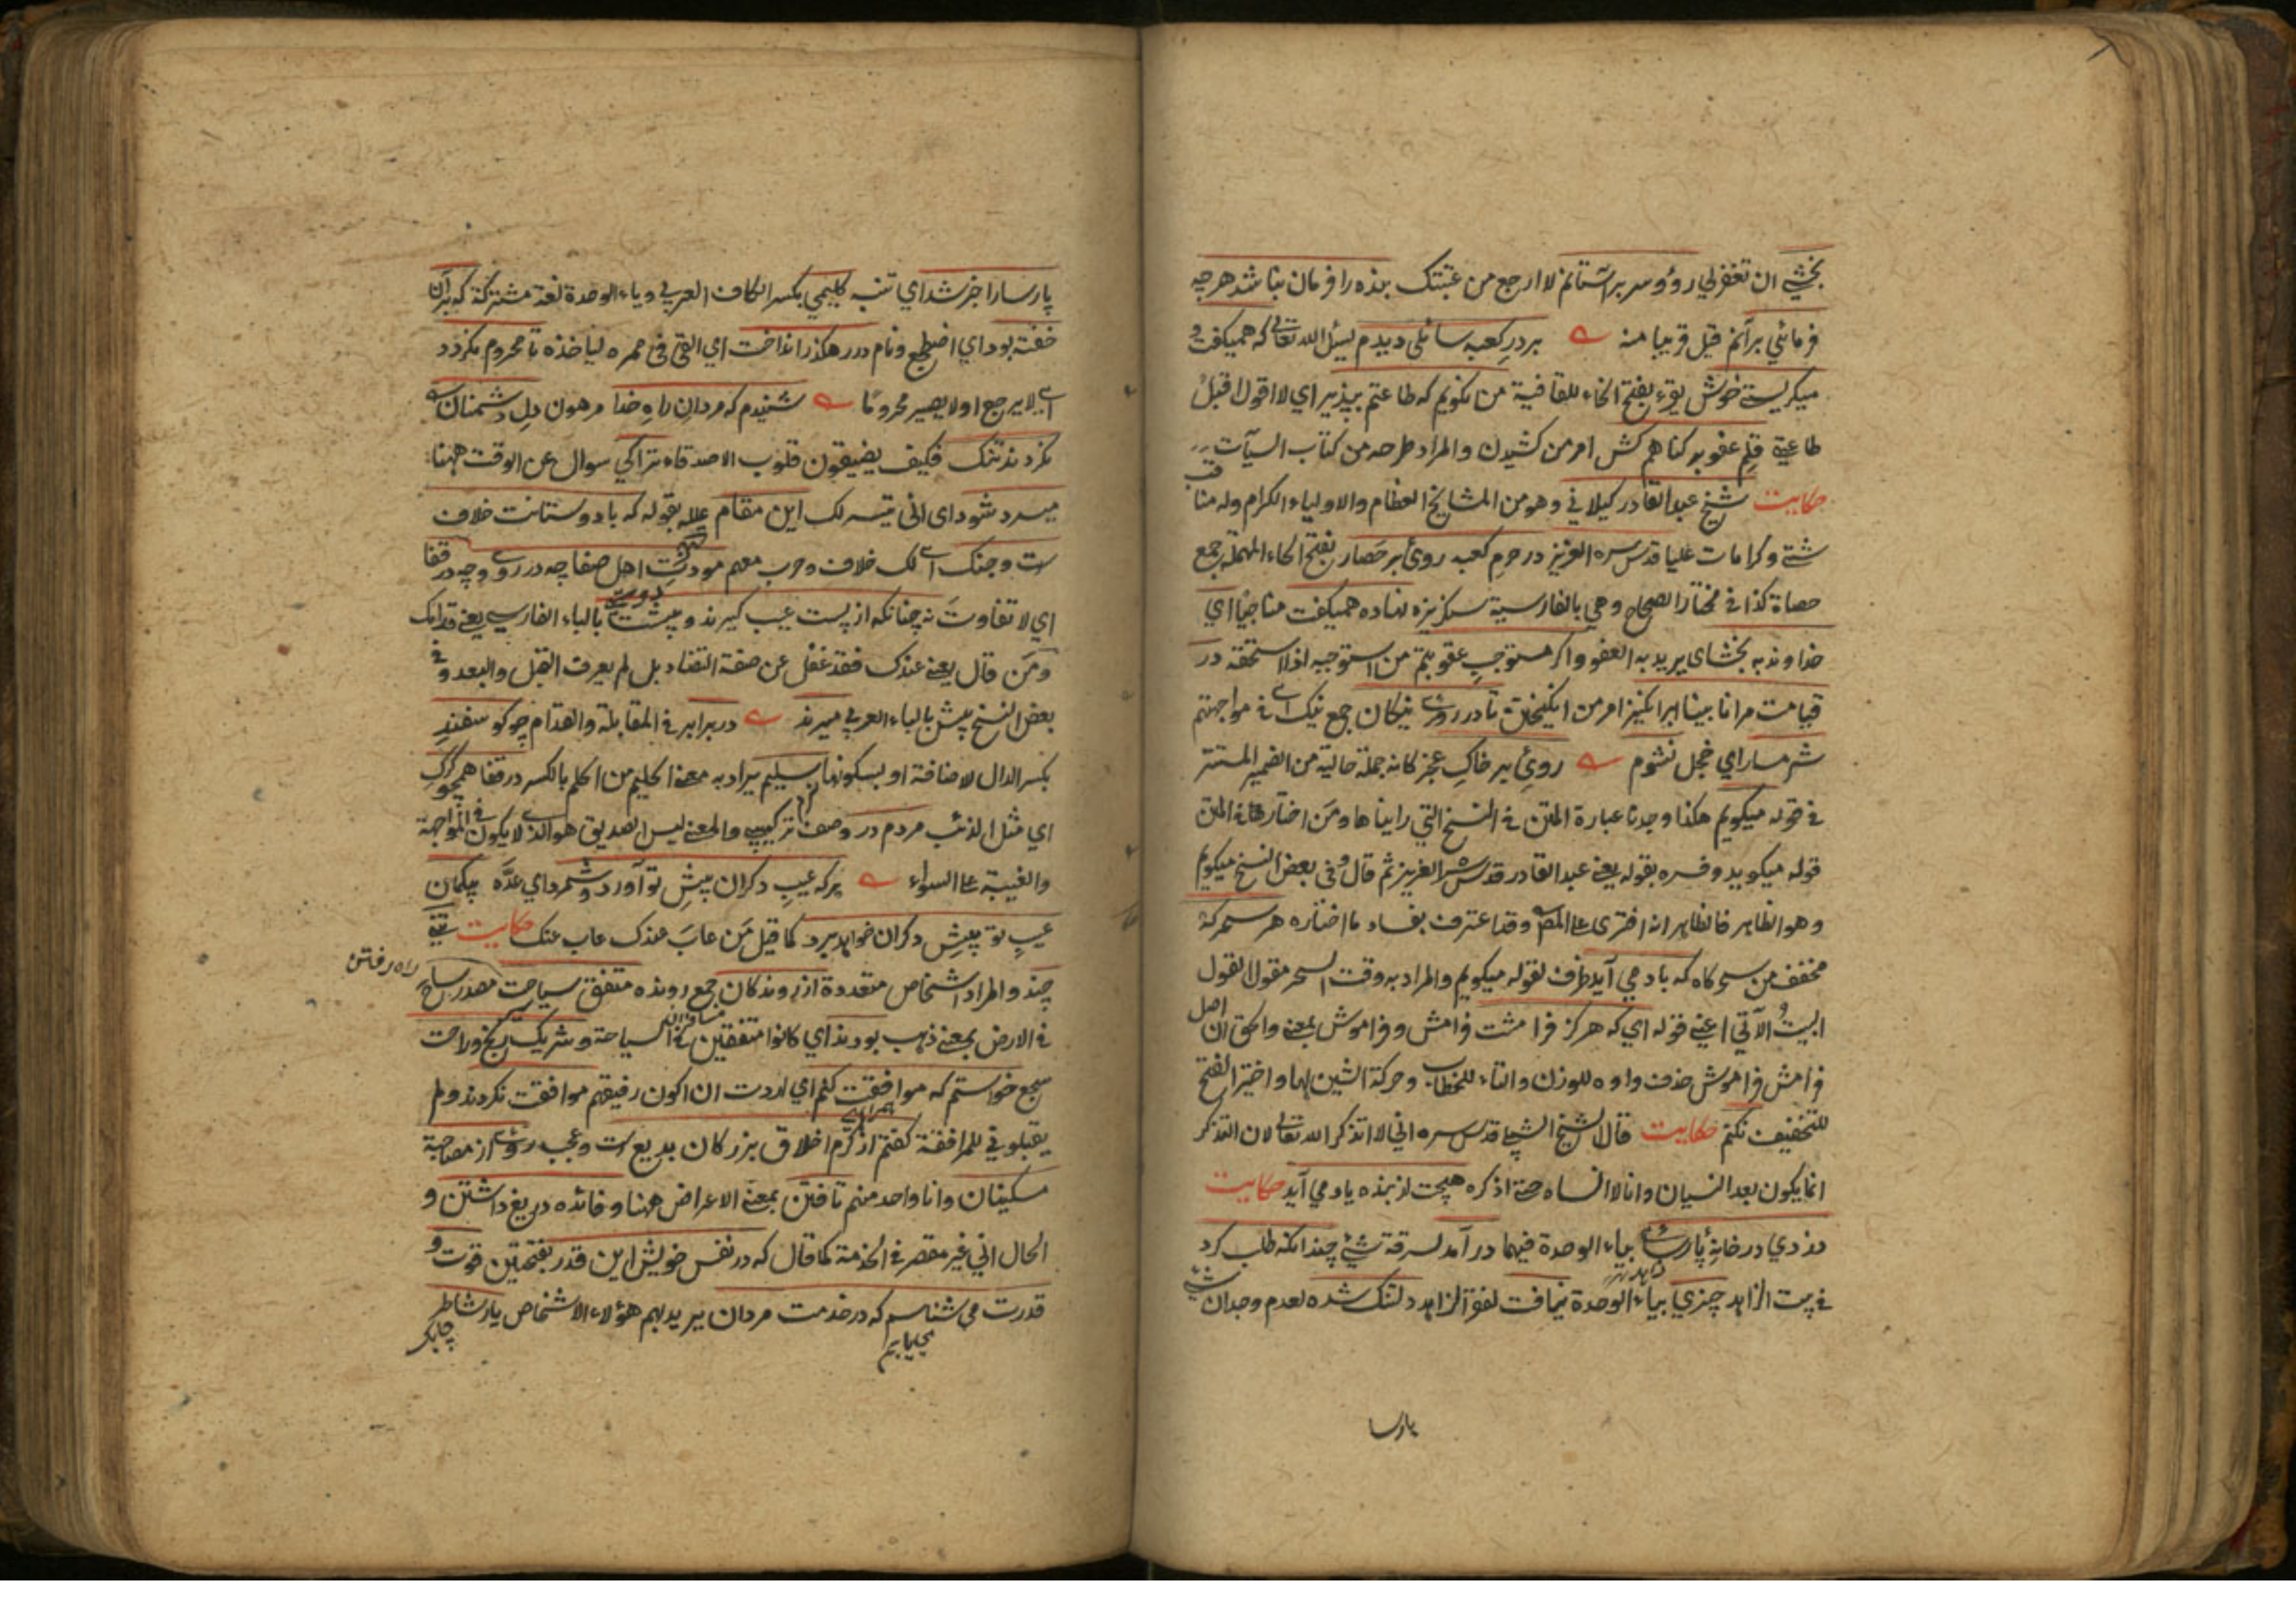 بخشي ان تغفرلي رؤو سر بر آستانم لا ارجع من عتبتك بنده را فرمان نباشد هرچه
فرمائي برآنم قيل قريبا منه بر در كعبه سائلى ديدم يسئل الله تعالى كه همى كفت و
ميكريستى خوش يقرء بفتح الخاء للقافية من نكويم كه طاعتم بپذير اي لا اقول اقبل
طاعتى قلم عفو بر كناهم كش امر من كشيدن والمراد طرحه من كتاب السيآت
حكايت شيخ عبد القادر كيلاني وهو من المشايخ العظام والاولياء الكرام وله مناقب
شتى وكرامات عليا قدس سره العزيز در حرم كعبه روى بر حصار بفتح الحاء المهملة جمع
حصاة كذا في مختار الصحاح وهي بالفارسية سنكريزه نهاده هميكفت مناجيا اي
خداوند به بخشاى يريد به العفو واكر مستوجب عقوبتم من استوجبه اذا استحقه در
قيامت مرا نابينا برانكيز امر من انكيختن تا در روى نيكان جمع نيك اى في مواجهتهم
شرمسار اي خجل نشوم روى بر خاك عجز كانه جملة حالية من الضمير المستتر
في قوله ميكويم هكذا وجدنا عبارة المتن في النسخ التي رايناها ومن اختار هافي المتن
قوله ميكويد وفسره بقوله يعني عبد القادر قدس سره العزيز ثم قال وفي بعض النسخ ميكويم
وهو الظاهر فالظاهر انه افترى على المص وقد اعترف بفساد ما اختاره هر سحركه
مخفف من سحركاه كه باد مي آيد ظرف لقوله ميكويم والمراد به وقت السحر مقول القول
البيت الآتي اعني قوله اي كه هركز فرامشت فرامش وفراموش بمعنى والحق ان اصل
فرامش فراموش حذف واوه للوزن والتاء للخطاب وحركة الشين لها واختير الفتح
للتخفيف نكنم حكايت قال الشيخ الشبلي قدس سره اني لا اتذكر الله تعالى لان التذكر
انما يكون بعد النسيان وانا لا انساه حتى اذكره هيچت از بنده ياد مي آيد حكايت
دزدي در خانه پارسائى بياء الوحدة فيهما در آمد لسرقة شيئ چندانكه طلب كرد
في بيت الزاهد چيزي بياء الوحدة نيافت لفقر الزاهد دلتنك شده لعدم وجدان شيئ
پارسا
پارسا را خبر شد اي تنبه كليمي بكسر الكاف العربي وياء الوحدة لغة مشتركة كه بر آن
خفته بود اي اضطجع ونام در رهكذر انداخت اي القى في ممره لياخذه تا محروم نكردد
اى لا يرجع اولا يصير محروما شنيدم كه مردان راه خدا مرهون دل دشمنان
نكردند تنك فكيف يضيقون قلوب الاصدقاء ترا كي سوال عن الوقت ههنا
ميسر شود اى انى تيسر لك اين مقام علله بقوله كه با دوستانت خلاف
ست وجنك اى لك خلاف وحرب معهم مودت اهل صفا چه در روى وچه در قفا
دوستى
اي لا تفاوت نه چنانكه از پست عيب كيرند وپيشت بالباء الفارسي يعني قدامك
ومن قال يعني عندك فقد غفل عن صفة التضاد بل لم يعرف القبل والبعد وفي
بعض النسخ بيش بالباء العربي ميرند در برابر في المقابلة والقدام چو كوسفند
بكسر الدال لاضافته او بسكونها سليم يراد به معنى الحليم من الحلم بالكسر در قفا همچو كرك
اي مثل الذئب مردم در وصف تركيبي والمعنى ليس الصديق هو الذي لا يكون في المواجهة
والغيبة على السواء هركه عيب دكران پيش تو آورد وشمرد اي عده بيكمان
عيب تو پيش دكران خواهد برد كما قيل من عاب عندك عاب عنك حكايت تنى
چند والمراد اشخاص متعددة از روندكان جمع رونده متفق سياحت مصدر ساح
راه رفتن
في الارض بمعنى ذهب بودند اي كانوا متفقين في السياحة وشريك رنج وراحت
سجع خواستم كه موافقت كنم اي اردت ان اكون رفيقهم موافقت نكردند ولم
همراهى
يقبلوني للمرافقة كفتم از كرم اخلاق بزركان بديع است وعجب روى از مصاحبة
مسكينان وانا واحد منهم تافتن بمعنى الاعراض ههنا وفائده دريغ داشتن و
الحال اني غير مقصر في الخدمة كما قال كه در نفس خويش اين قدر بفتحتين قوت و
قدرت مي شناسم كه در خدمت مردان يريد بهم هؤلاء الاشخاص يار شاطر
چابك